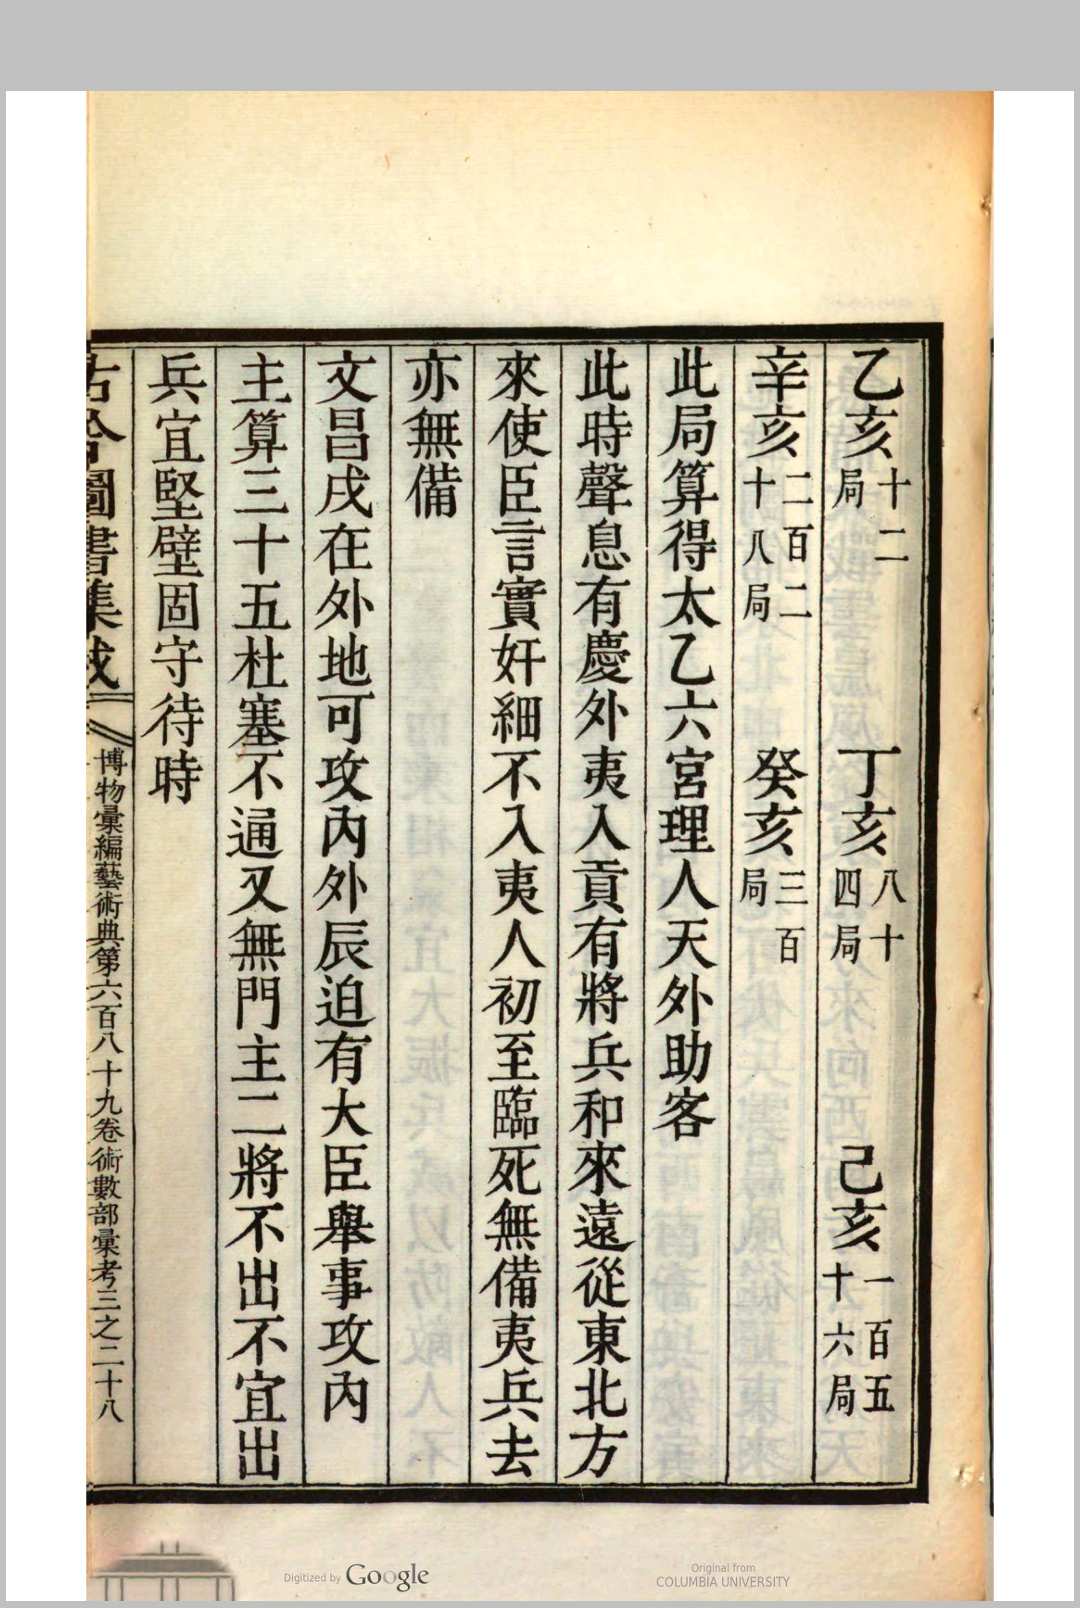 乙亥十二局 丁亥八十四局 己亥一百五十六局
辛亥二百二十八局 癸亥三百局
此局算得太乙六宮理人天外助客
此時聲息有慶外夷入貢有將兵和來遠從東北方
來使臣言實奸細不入夷人初至臨死無備夷兵去
亦無備
文昌戌在外地可攻內外辰迫有大臣舉事攻內
主算三十五杜塞不通又無門主二將不出不宜出
兵宜堅壁固守待時
古今圖書集成 博物彙編藝術典第六百八十九卷術數部彙考三之二十八
Digitized by Google
Original from
COLUMBIA UNIVERSITY